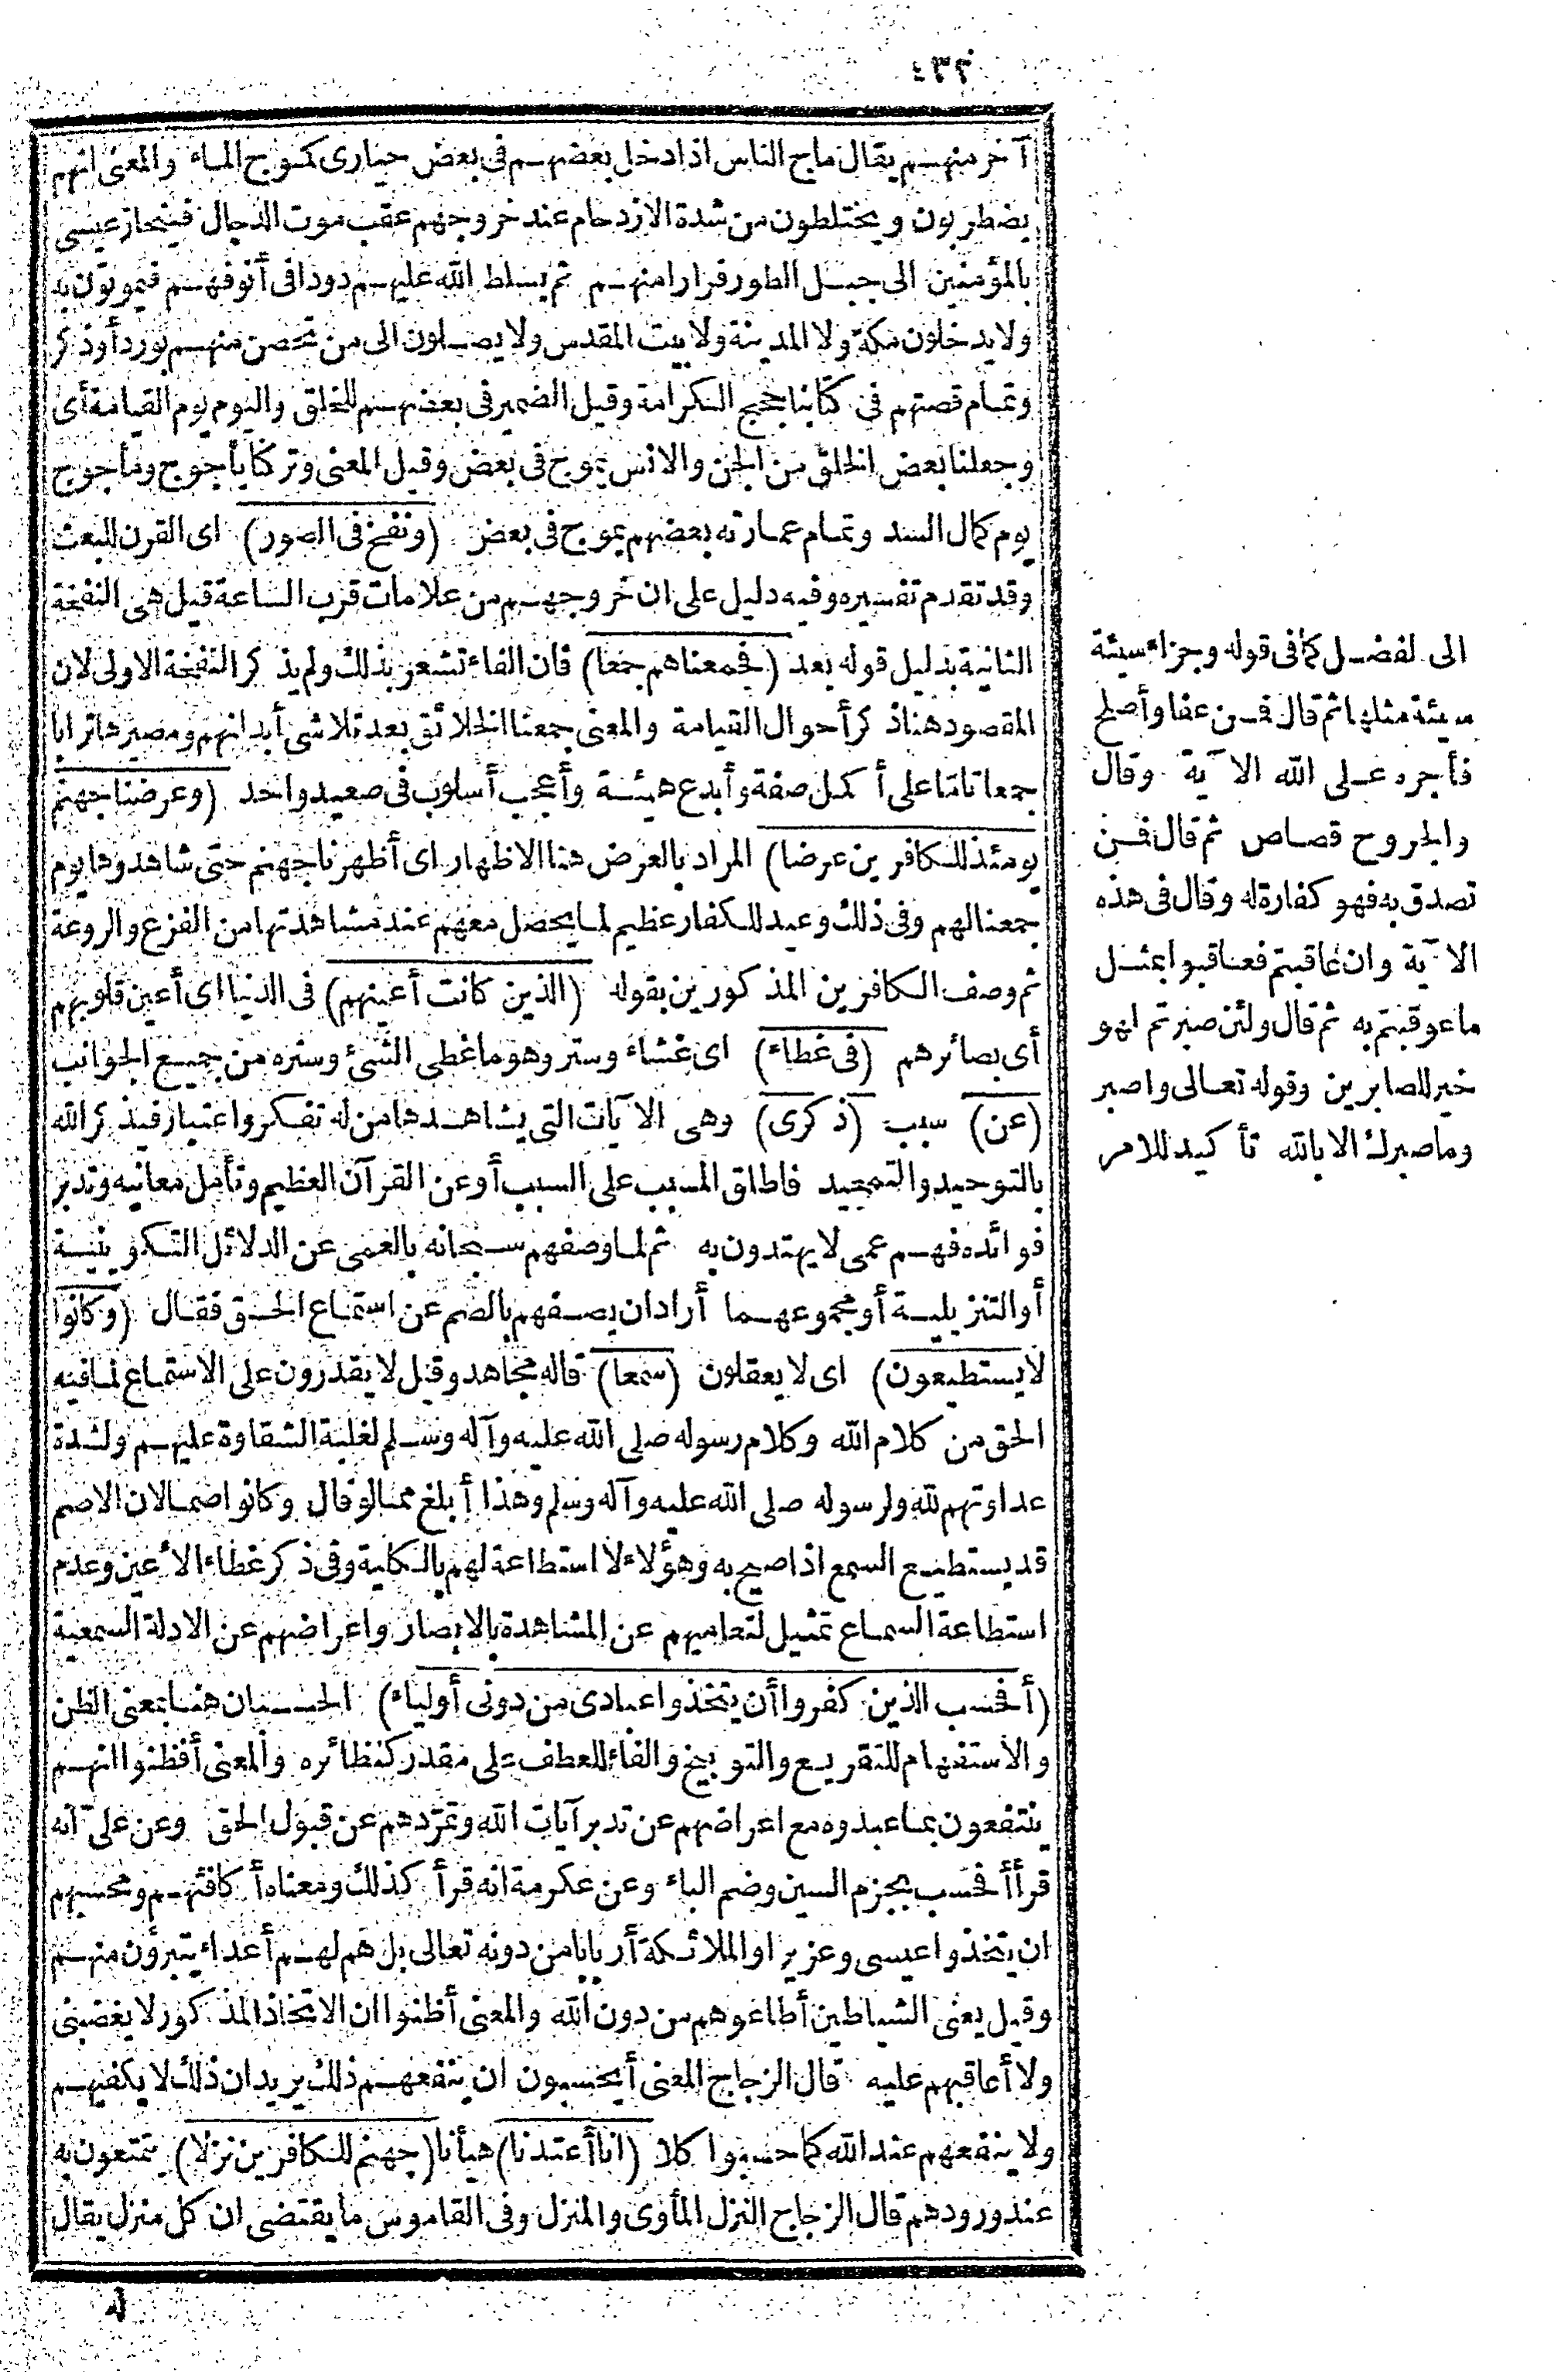 آخر منهم يقال ماج الناس اذا دخل بعضهم فى بعض حيارى كموج الماء والمعنى انهم
يضطربون ويختلطون من شدة الازدحام عند خروجهم عقب موت الدجال فينحاز عيسى
بالمؤمنين الى جبل الطور فرارا منهم ثم يسلط الله عليهم دودا فى أنوفهم فيموتون به
ولا يدخلون مكة ولا المدينة ولا بيت المقدس ولا يصلون الى من تحصن منهم بورد أو ذكر
وتمام قصتهم فى كتابنا حجج الكرامة وقيل الضمير فى بعضهم للخلق واليوم يوم القيامة أى
وجعلنا بعض الخلق من الجن والانس يموج فى بعض وقيل المعنى وتركنا يأجوج ومأجوج
يوم كمال السد وتمام عمارته بعضهم يموج فى بعض (ونفخ فى الصور) اى القرن للبعث
وقد تقدم تفسيره وفيه دليل على ان خروجهم من علامات قرب الساعة قيل هى النفخة
الثانية بدليل قوله بعد (فجمعناهم جمعا) فان الفاء تشعر بذلك ولم يذكر النفخة الاولى لان
المقصود هنا ذكر أحوال القيامة والمعنى جمعنا الخلائق بعد تلاشى أبدانهم ومصيرها ترابا
جمعا تاما على أكمل صفة وأبدع هيئة وأعجب أسلوب فى صعيد واحد (وعرضنا جهنم
يومئذ للكافرين عرضا) المراد بالعرض هنا الاظهار اى أظهرنا جهنم حتى شاهدوها يوم
جمعنا لهم وفى ذلك وعيد للكفار عظيم لما يحصل معهم عند مشاهدتها من الفزع والروعة
ثم وصف الكافرين المذكورين بقوله (الذين كانت أعينهم) فى الدنيا اى أعين قلوبهم
أى بصائرهم (فى غطاء) اى غشاء وستر وهو ما غطى الشئ وستره من جميع الجوانب
(عن) سبب (ذكرى) وهى الآيات التى يشاهدها من له تفكر واعتبار فيذكر الله
بالتوحيد والتمجيد فاطلق المسبب على السبب أو عن القرآن العظيم وتأمل معانيه وتدبر
فوائده فهم عمى لا يهتدون به ثم لما وصفهم سبحانه بالعمى عن الدلائل التكوينية
أو التنزيلية أو مجموعهما أراد ان يصفهم بالصم عن استماع الحق فقال (وكانوا
لا يستطيعون) اى لا يعقلون (سمعا) قاله مجاهد وقيل لا يقدرون على الاستماع لما فيه
الحق من كلام الله وكلام رسوله صلى الله عليه وآله وسلم لغلبة الشقاوة عليهم ولشدة
عداوتهم لله ولرسوله صلى الله عليه وآله وسلم وهذا أبلغ مما لو قال وكانوا صما لان الاصم
قد يستطيع السمع اذا صيح به وهؤلاء لا استطاعة لهم بالكلية وفى ذكر غطاء الأعين وعدم
استطاعة السماع تمثيل لتعاميهم عن المشاهدة بالابصار واعراضهم عن الادلة السمعية
(أفحسب الذين كفروا أن يتخذوا عبادى من دونى أولياء) الحسبان هنا بمعنى الظن
والاستفهام للتقريع والتوبيخ والفاء للعطف على مقدر كنظائره والمعنى أفظنوا انهم
ينتفعون بما عبدوه مع اعراضهم عن تدبر آيات الله وتمردهم عن قبول الحق وعن على انه
قرأ أفحسب بجزم السين وضم الباء وعن عكرمة انه قرأ كذلك ومعناه أكافئهم ومحسبهم
ان يتخذوا عيسى وعزيرا والملائكة أربابا من دونه تعالى بل هم لهم أعداء يتبرؤن منهم
وقيل يعنى الشياطين أطاعوهم من دون الله والمعنى أظنوا ان الاتخاذ المذكور لا يغضبنى
ولا أعاقبهم عليه قال الزجاج المعنى أيحسبون ان ينفعهم ذلك يريد ان ذلك لا يكفيهم
ولا ينفعهم عند الله كما حسبوا كلا (انا أعتدنا) هيأنا (جهنم للكافرين نزلا) يتمتعون به
عند ورودهم قال الزجاج النزل المأوى والمنزل وفى القاموس ما يقتضى ان كل منزل يقال
له
الى لفضل كما فى قوله وجزاء سيئة
سيئة مثلها ثم قال فمن عفا وأصلح
فأجره على الله الآية وقال
والجروح قصاص ثم قال فمن
تصدق به فهو كفارة له وقال فى هذه
الآية وان عاقبتم فعاقبوا بمثل
ما عوقبتم به ثم قال ولئن صبرتم لهو
خير للصابرين وقوله تعالى واصبر
وما صبرك الا بالله تأكيد للامر